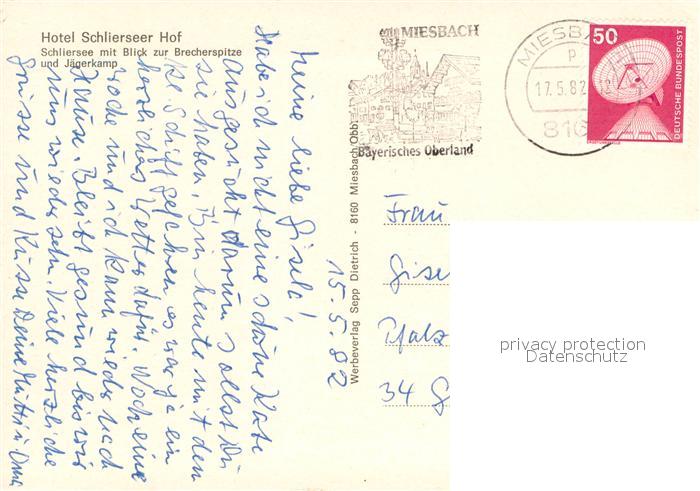 Hotel Schlierseer Hof
Schliersee mit Blick zur Brecherspitze
und Jägerkamp
Meine liebe Gisela!
Habe ich nicht eine schöne Karte
ausgesucht darum sollst Du
sie haben. Bin heute mit dem
Schiff gefahren es war ja ein
herrliches Wetter dafür. Noch eine
Woche und ich kann wieder nach
Hause. Bleibt gesund bis wir
uns wieder sehn. Viele herzliche
Grüsse und Küsse Deine Mutti u. Oma
15.5.82
Werbeverlag Sepp Dietrich - 8160 Miesbach/Obb.
MIESBACH
Bayerisches Oberland
MIESBA
17.5.82
816
50
DEUTSCHE BUNDESPOST
Frau
Gise
Pfalz
34 G
privacy protection
Datenschutz